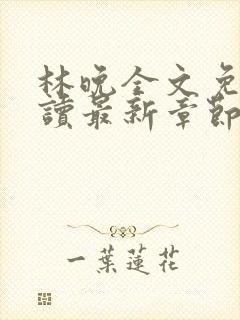 林晚全文免
讀最新章節
一葉蓮花